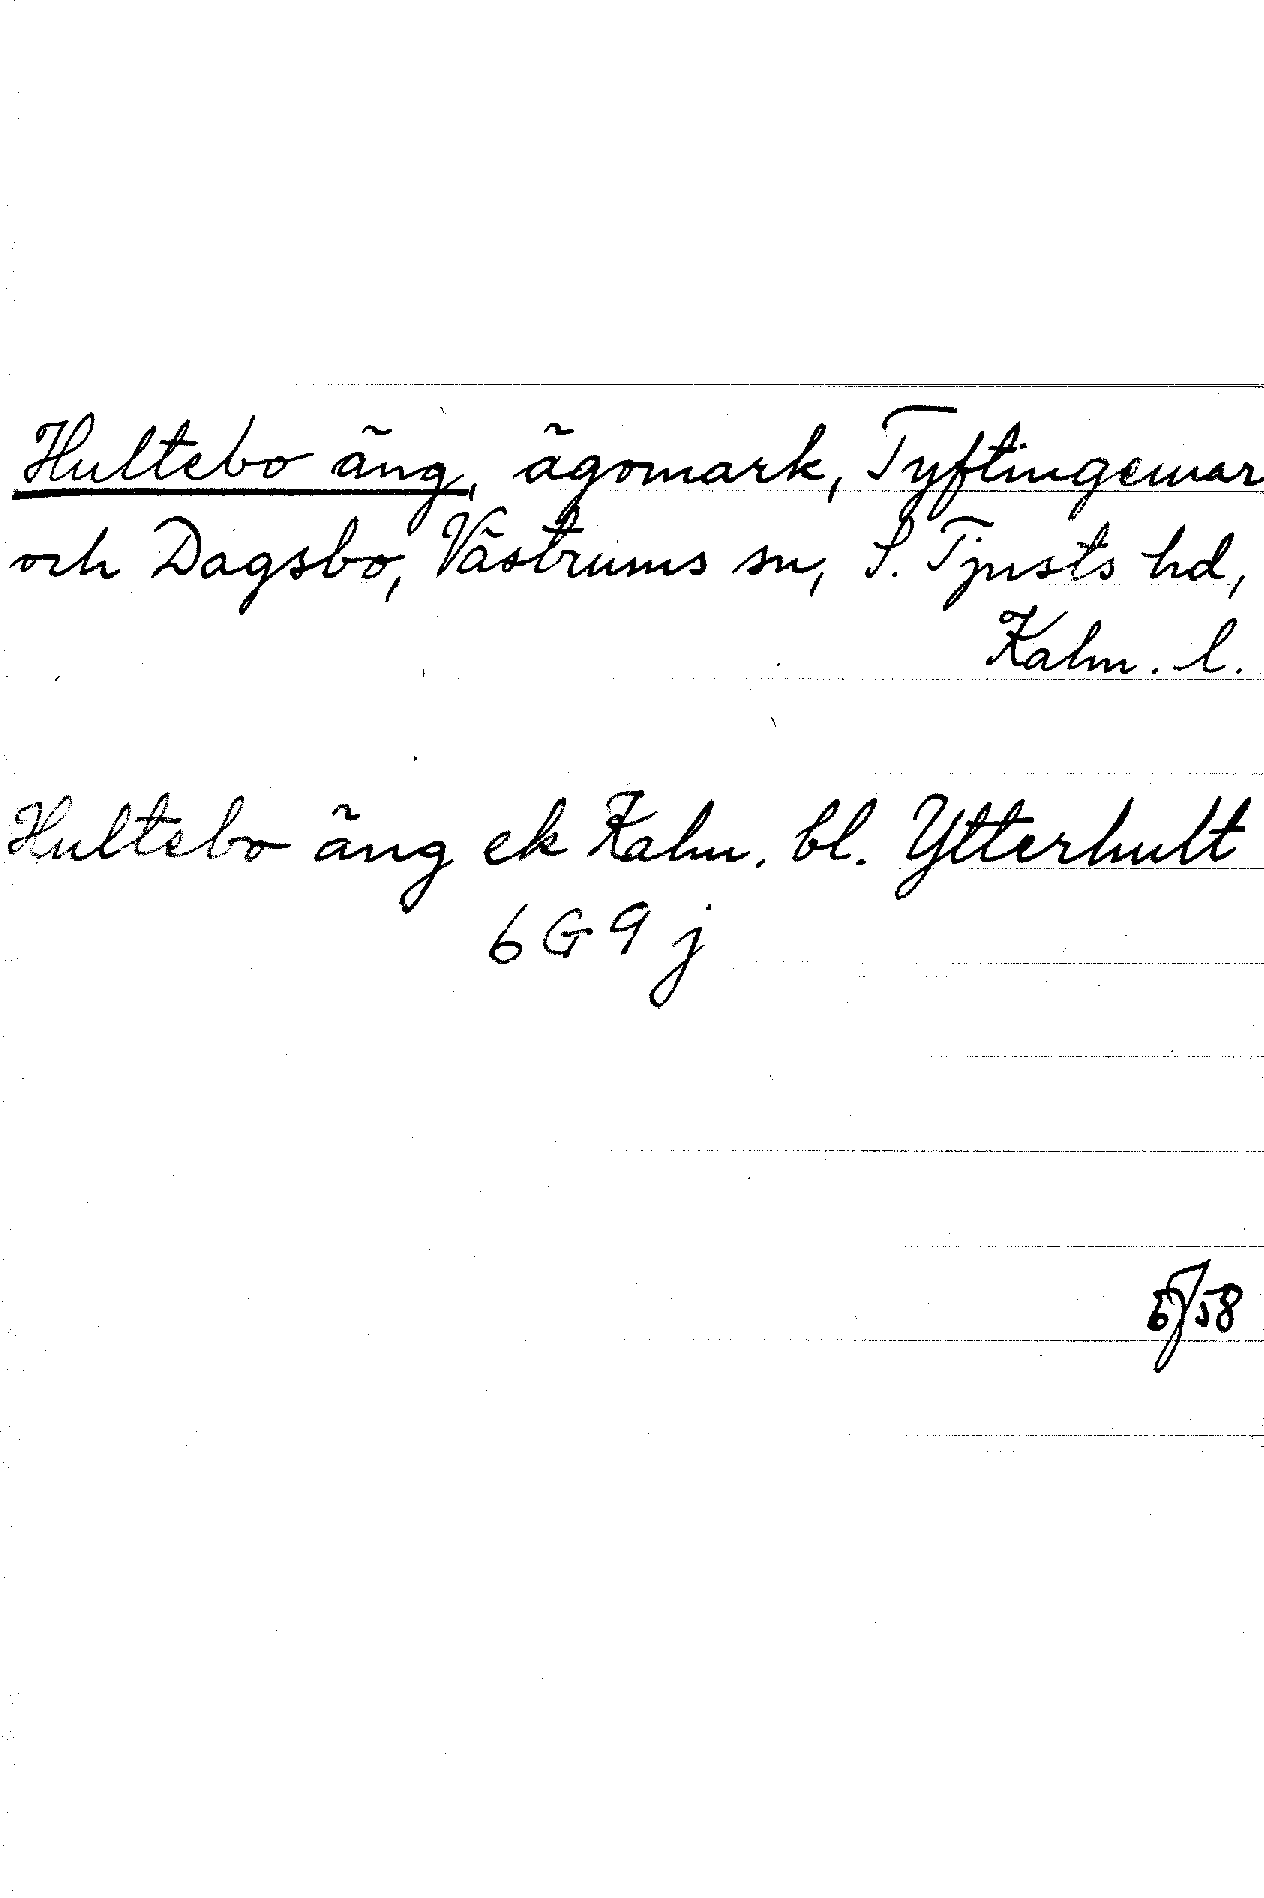 Hultebo äng, ägomark, Tyftingemar
och Dagsbo, Västrums sn, S. Tjusts hd,
Kalm. l.
Hultebo äng ek Kalm. bl. Ytterhult
6G9j
58